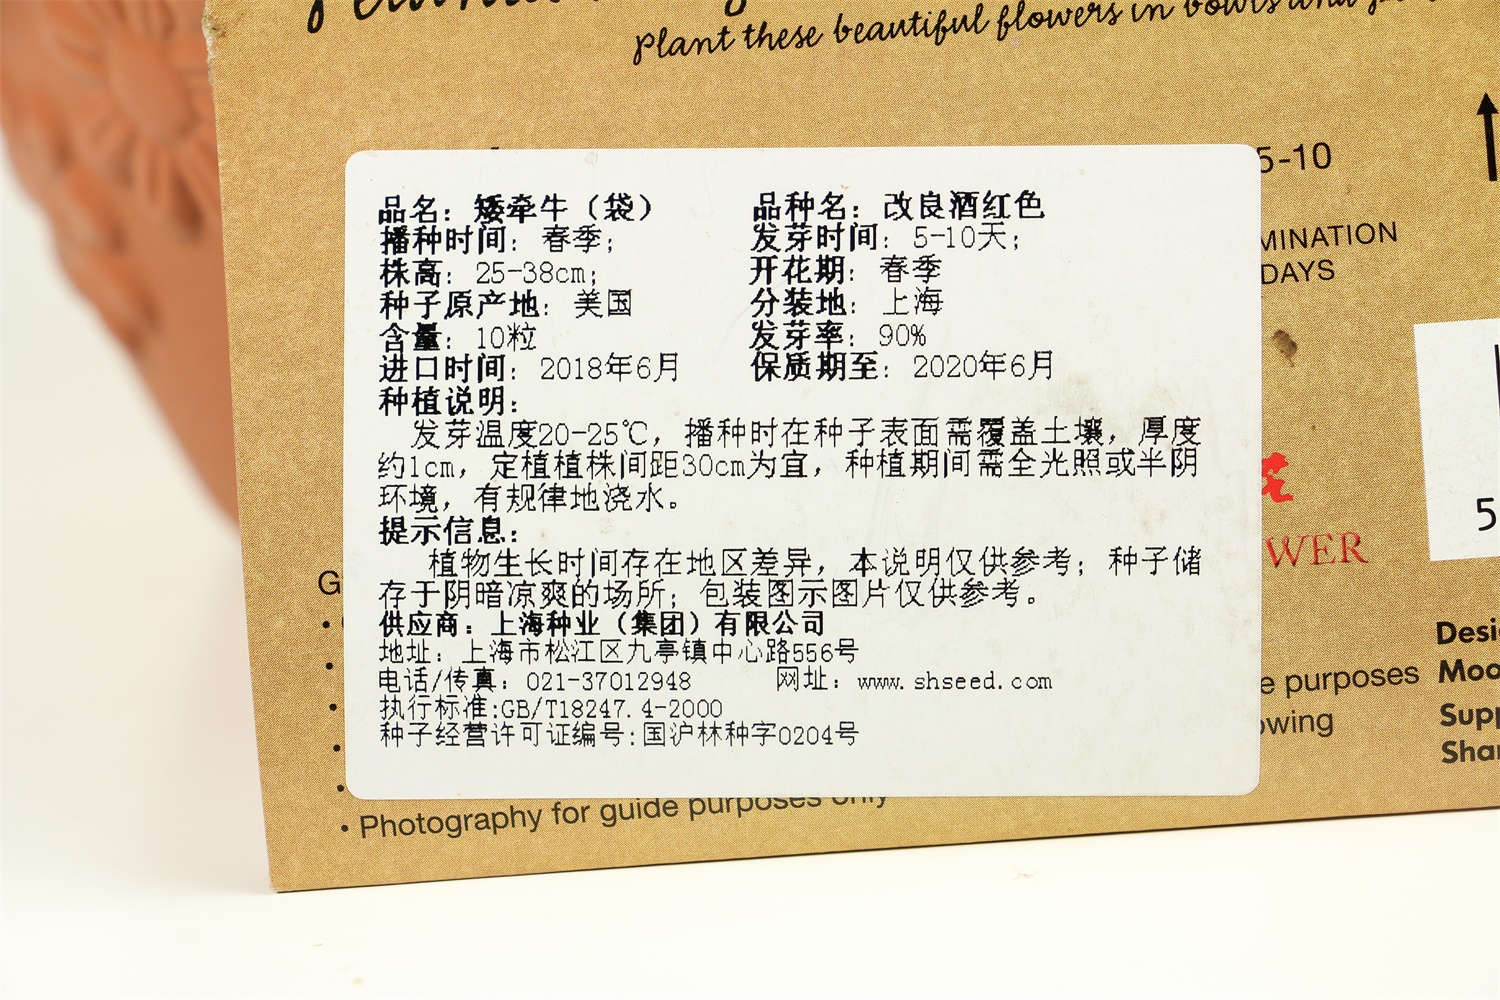 Plant these beautiful flowers in bowls and
5-10
MINATION
DAYS
品名：矮牵牛（袋） 品种名：改良酒红色
播种时间：春季； 发芽时间：5-10天；
株高：25-38cm； 开花期：春季
种子原产地：美国 分装地：上海
含量：10粒 发芽率：90%
进口时间：2018年6月 保质期至：2020年6月
种植说明：
发芽温度20-25℃，播种时在种子表面需覆盖土壤，厚度
约1cm，定植植株间距30cm为宜，种植期间需全光照或半阴
环境，有规律地浇水。
提示信息：
植物生长时间存在地区差异，本说明仅供参考；种子储
存于阴暗凉爽的场所；包装图示图片仅供参考。
供应商：上海种业（集团）有限公司
地址：上海市松江区九亭镇中心路556号
电话/传真：021-37012948 网址：www.shseed.com
执行标准:GB/T18247.4-2000
种子经营许可证编号:国沪林种字0204号
WER
5
G
e purposes
owing
Desi
Moo
Supp
Shar
• Photography for guide purposes only